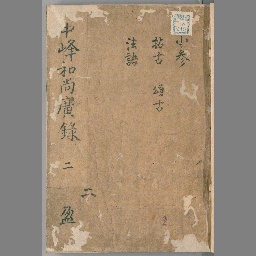 小參
拈古 頌古
法語
中峰和尚廣錄 二
二 盈
2